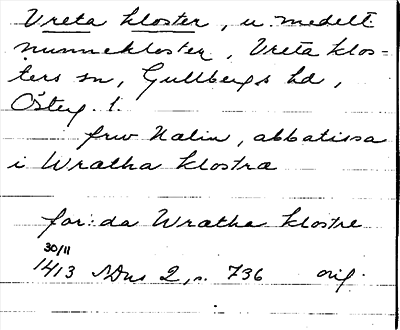 Vreta kloster, u. medelt
nunnekloster, Vreta klos-
ters sn, Gullbergs hd,
Österg. l.
frw Nalin, abbatissa
i Wrætha klostra
for:da Wrætha klostre
30/11
1413 SDns 2, s. 736 orig.